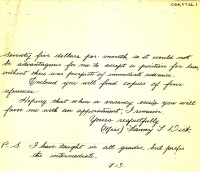 seventy five dollars per month, so it would not
be advantageous for me to accept a position for less,
without there was prospects of immediate advance.
Enclosed you will find copies of five
references.
Hoping that when a vacancy occurs you will
favor me with an appointment, I remain
Yours respectfully
(Miss) Fannie
P. S. I have taught in all grades, but prefer
the intermediate.